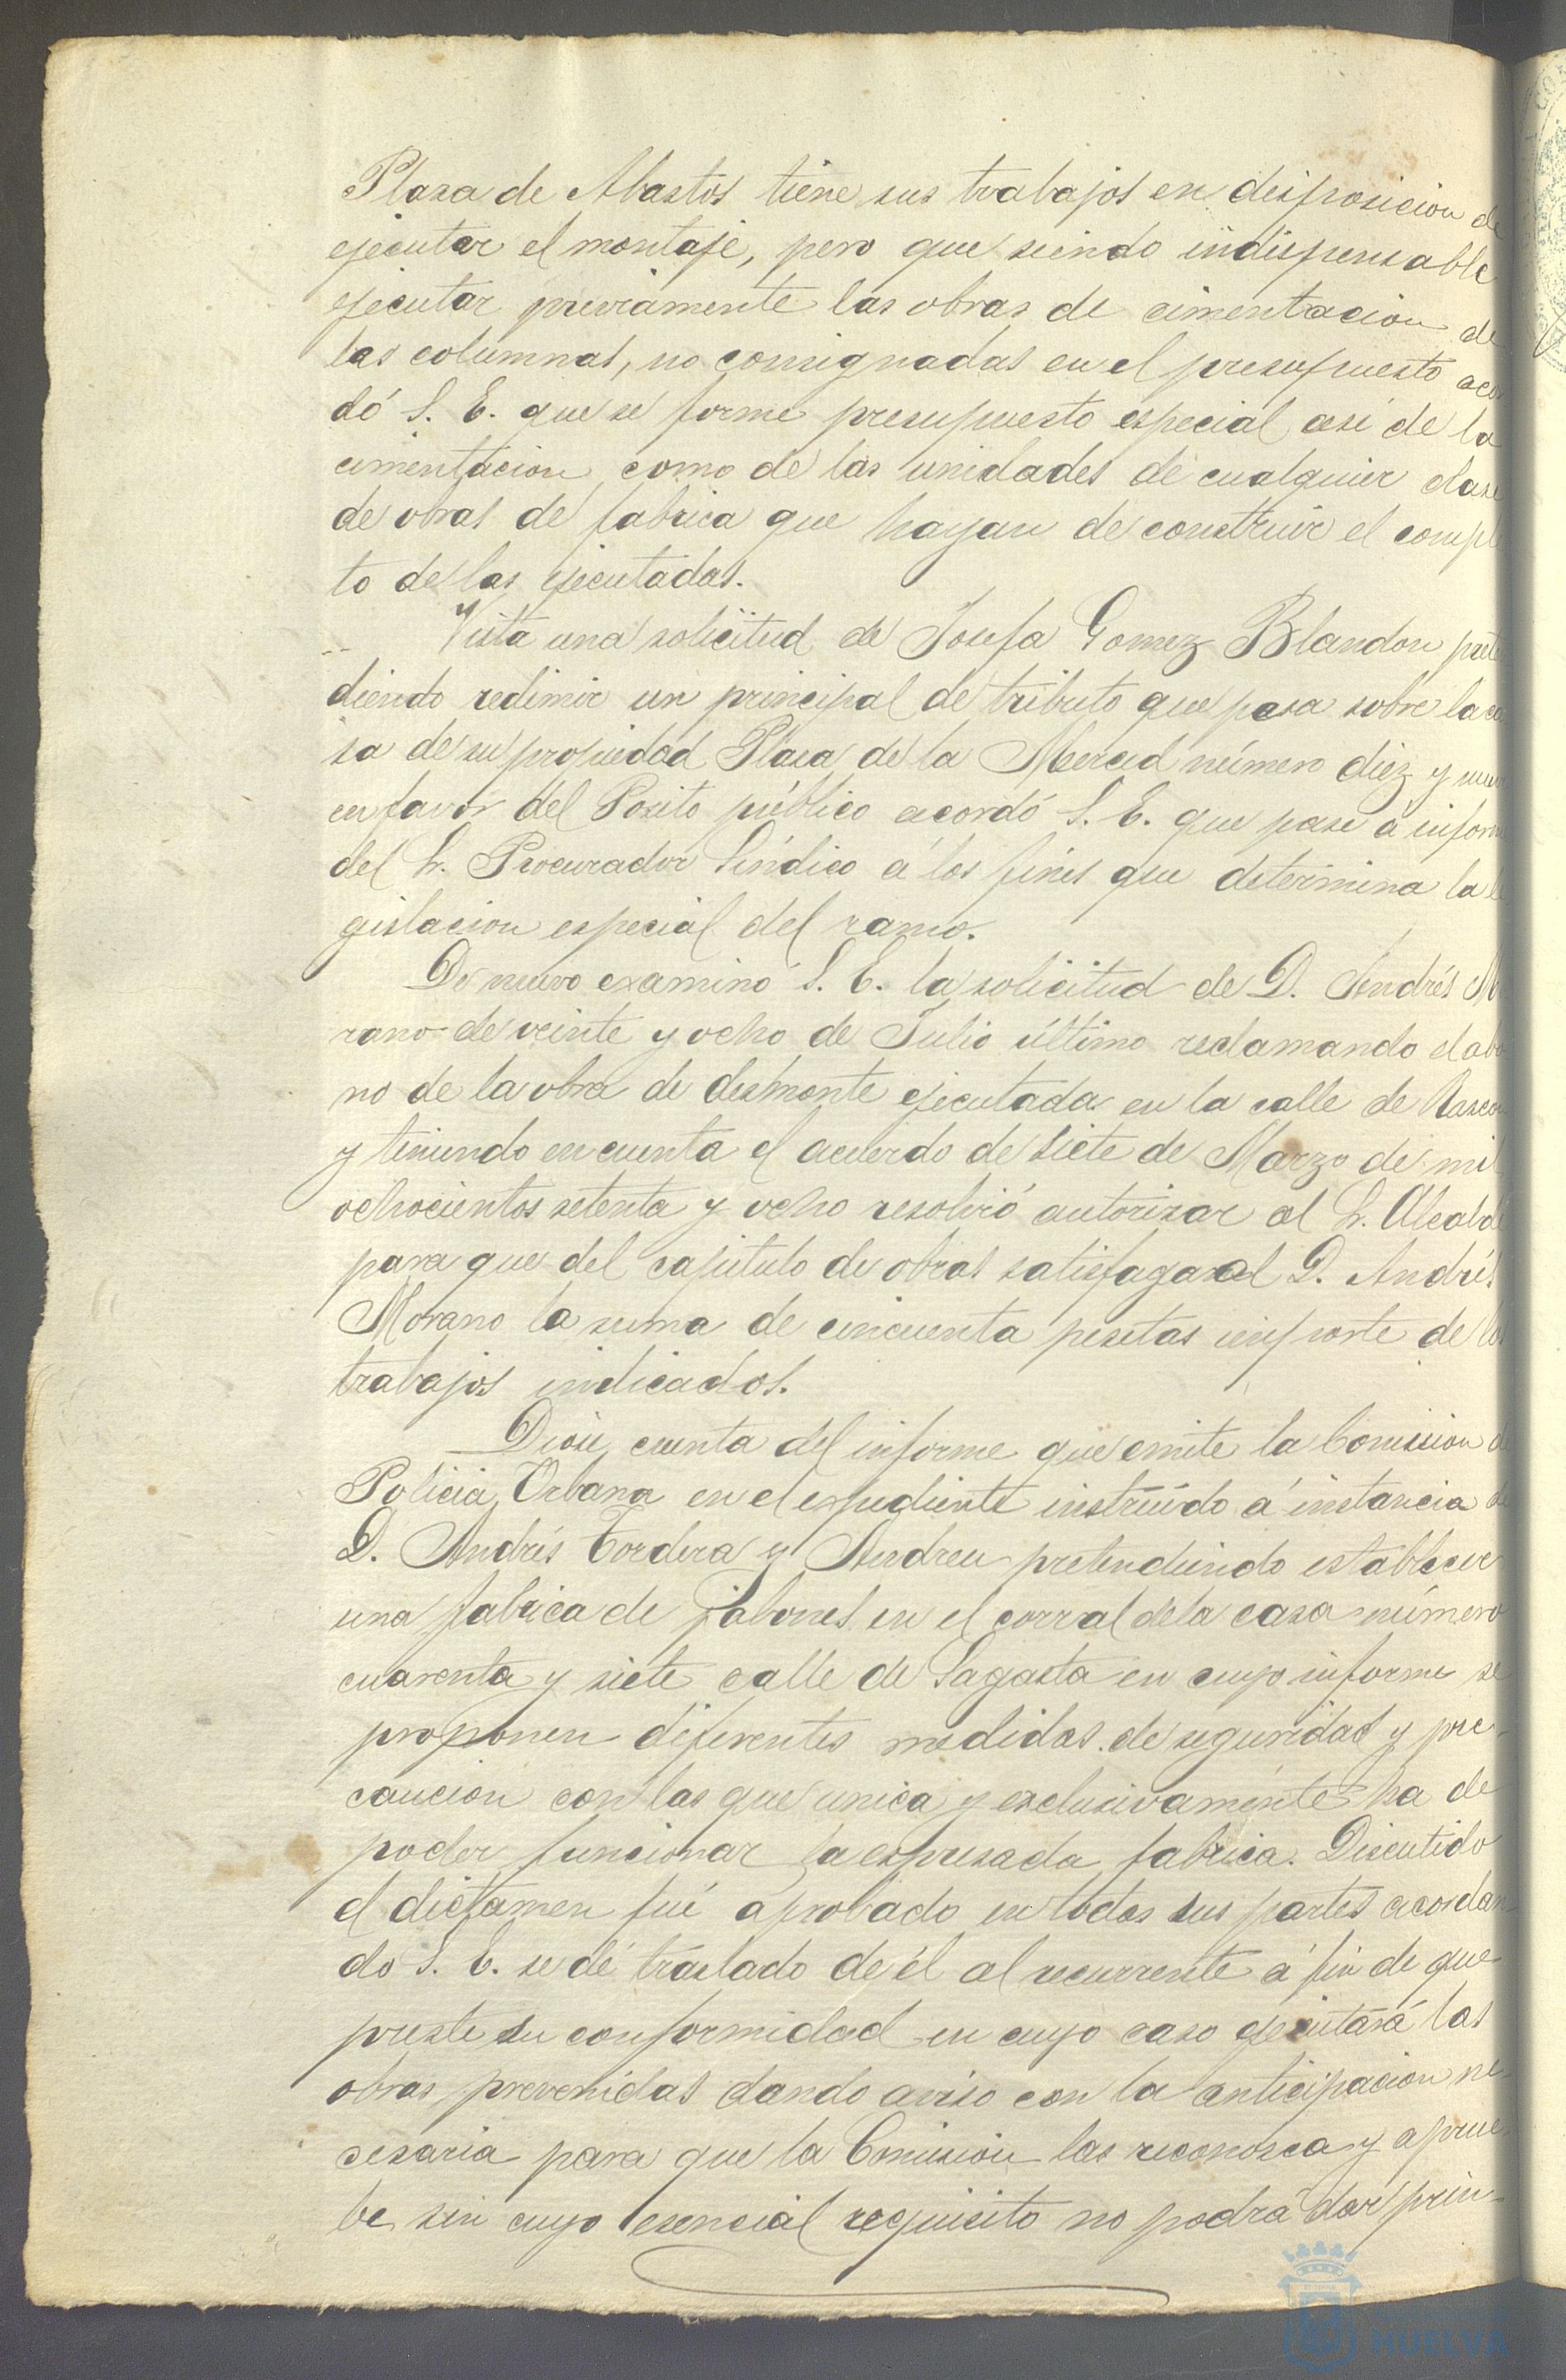 Plasa de Abastos tiene sus trabajos en disposicion de
ejecutar el montaje, pero que siendo indispensable
ejecutar previamente las obras de cimentacion de
las columnas, no consignadas en el presupuesto acor
dó S. E. que se forme presupuesto especial asi de la
cimentacion como de las unidades de cualquier clase
de obras de fabrica que hayan de construir el comple
to de las ejecutadas.
Vista una solicitud de Josefa Gomez Blandon prete
diendo redimir un principal de tributo que pesa sobre la ca
sa de su propiedad Plasa de la Merced número diez y nueve
en favor del Posito público acordó S. E. que pase á informe
del Sr. Procurador Sindico á los fines que determina la le
gislacion especial del ramo.
De nuevo examinó S. E. la solicitud de D. Andrés Mo
rano de veinte y ocho de Julio último reclamando el abo
no de la obra de desmonte ejecutada en la calle de Rascon
y teniendo en cuenta el acuerdo de siete de Marzo de mil
ochocientos setenta y ocho resolvió autorizar al Sr. Alcalde
para que del capitulo de obras satisfaga al D. Andrés
Morano la suma de cincuenta pesetas importe de los
trabajos indicados.
Diose cuenta del informe que emite la Comision de
Policia Urbana en el expediente instruido á instancia de
D. Andrés Tordera y Andreu pretendiendo establecer
una fabrica de jabones en el corral de la casa número
cuarenta y siete calle de Sagasta en cuyo informe se
proponen diferentes medidas de seguridad y pre-
caucion con las que unica y exclusivamente ha de
poder funcionar la espresada fabrica. Discutido
el dictamen fué aprobado en todas sus partes acordan-
do S. E. se dé traslado de él al recurrente á fin de que
preste su conformidad en cuyo caso ejecutará las
obras prevenidas dando aviso con la anticipacion ne-
cesaria para que la Comision las reconosca y aprue-
be sin cuyo esencial requisito no podrá dar prin-
HUELVA